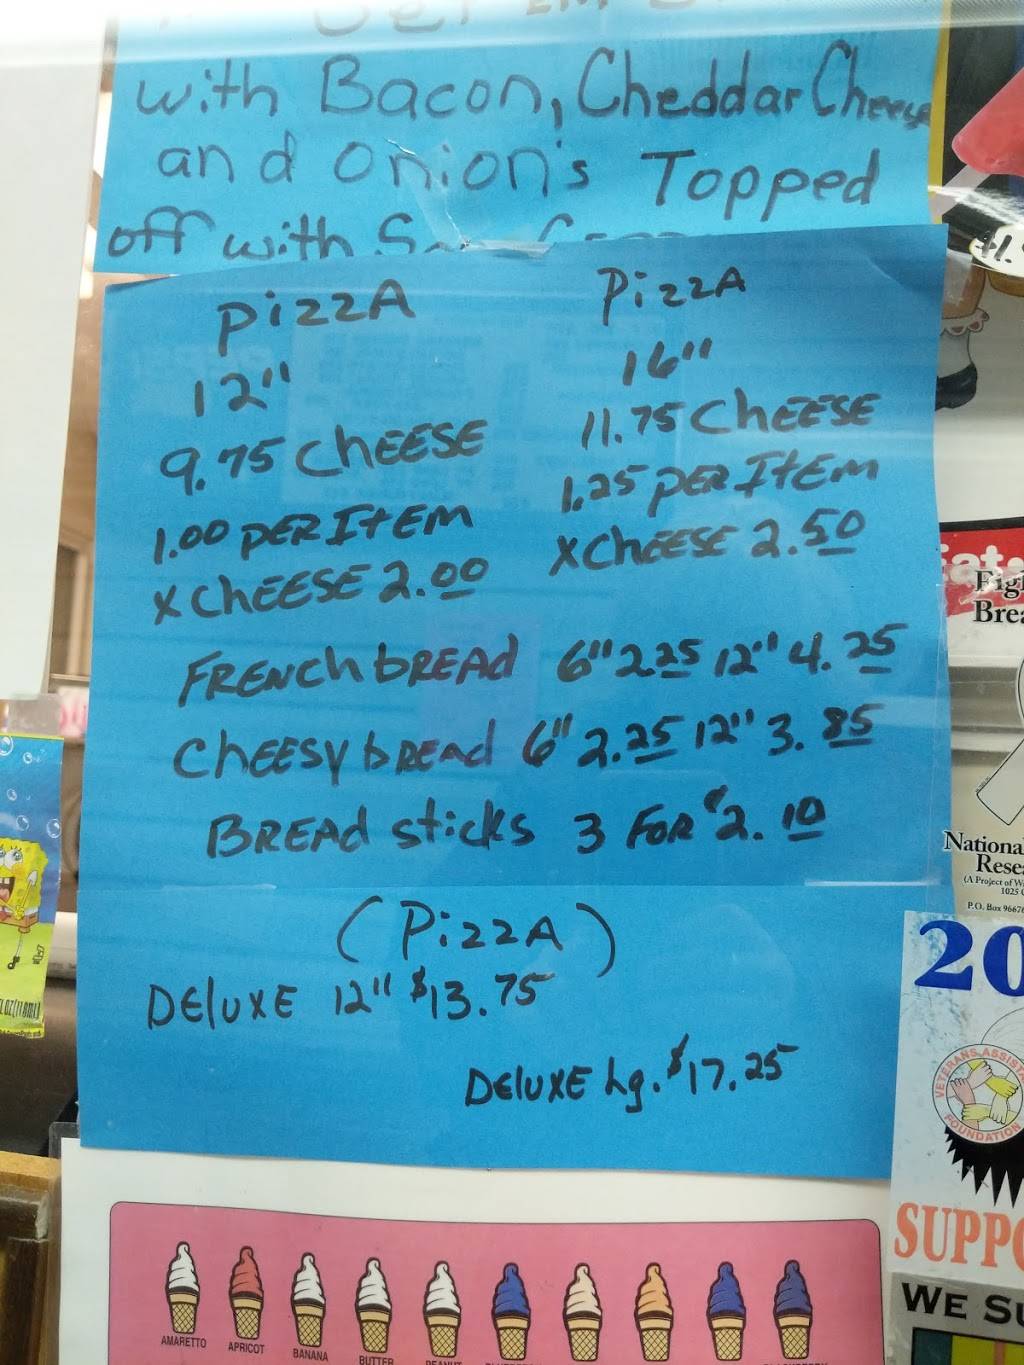 with Bacon, Cheddar Cheese
and Onion's Topped
off with
PizzA
12"
9.75 ChEESE
1.00 PER ItEM
x ChEESE 2.00
PizzA
16"
11.75 ChEESE
1.25 PER ItEM
x ChEESE 2.50
FRENCh bREAD 6" 2.25 12" 4.25
ChEESy bREAd 6" 2.25 12" 3.85
BREAd sticks 3 FOR $2.10
(PizzA)
DEluxE 12" $13.75
DEluxE Lg. $17.25
AMARETTO
APRICOT
BANANA
BUTTER
PEANUT
Nationa
Resea
(A Project of W
1025
P.O. Box 9667
20
VETERANS ASSIST
FOUNDATION
SUPPO
WE SU
Figh
Brea